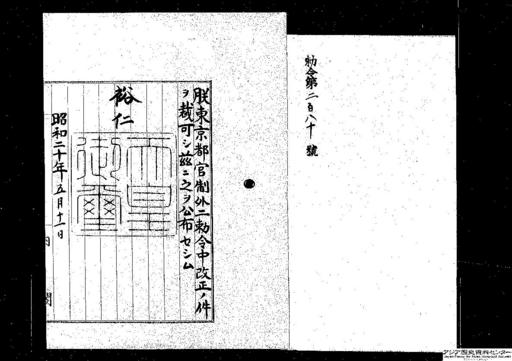 勅令第二百八十號
朕東京都官制外二勅令中改正ノ件
ヲ裁可シ茲ニ之ヲ公布セシム
裕仁
天皇御璽
昭和二十年五月十一日
内閣
アジア歴史資料センター